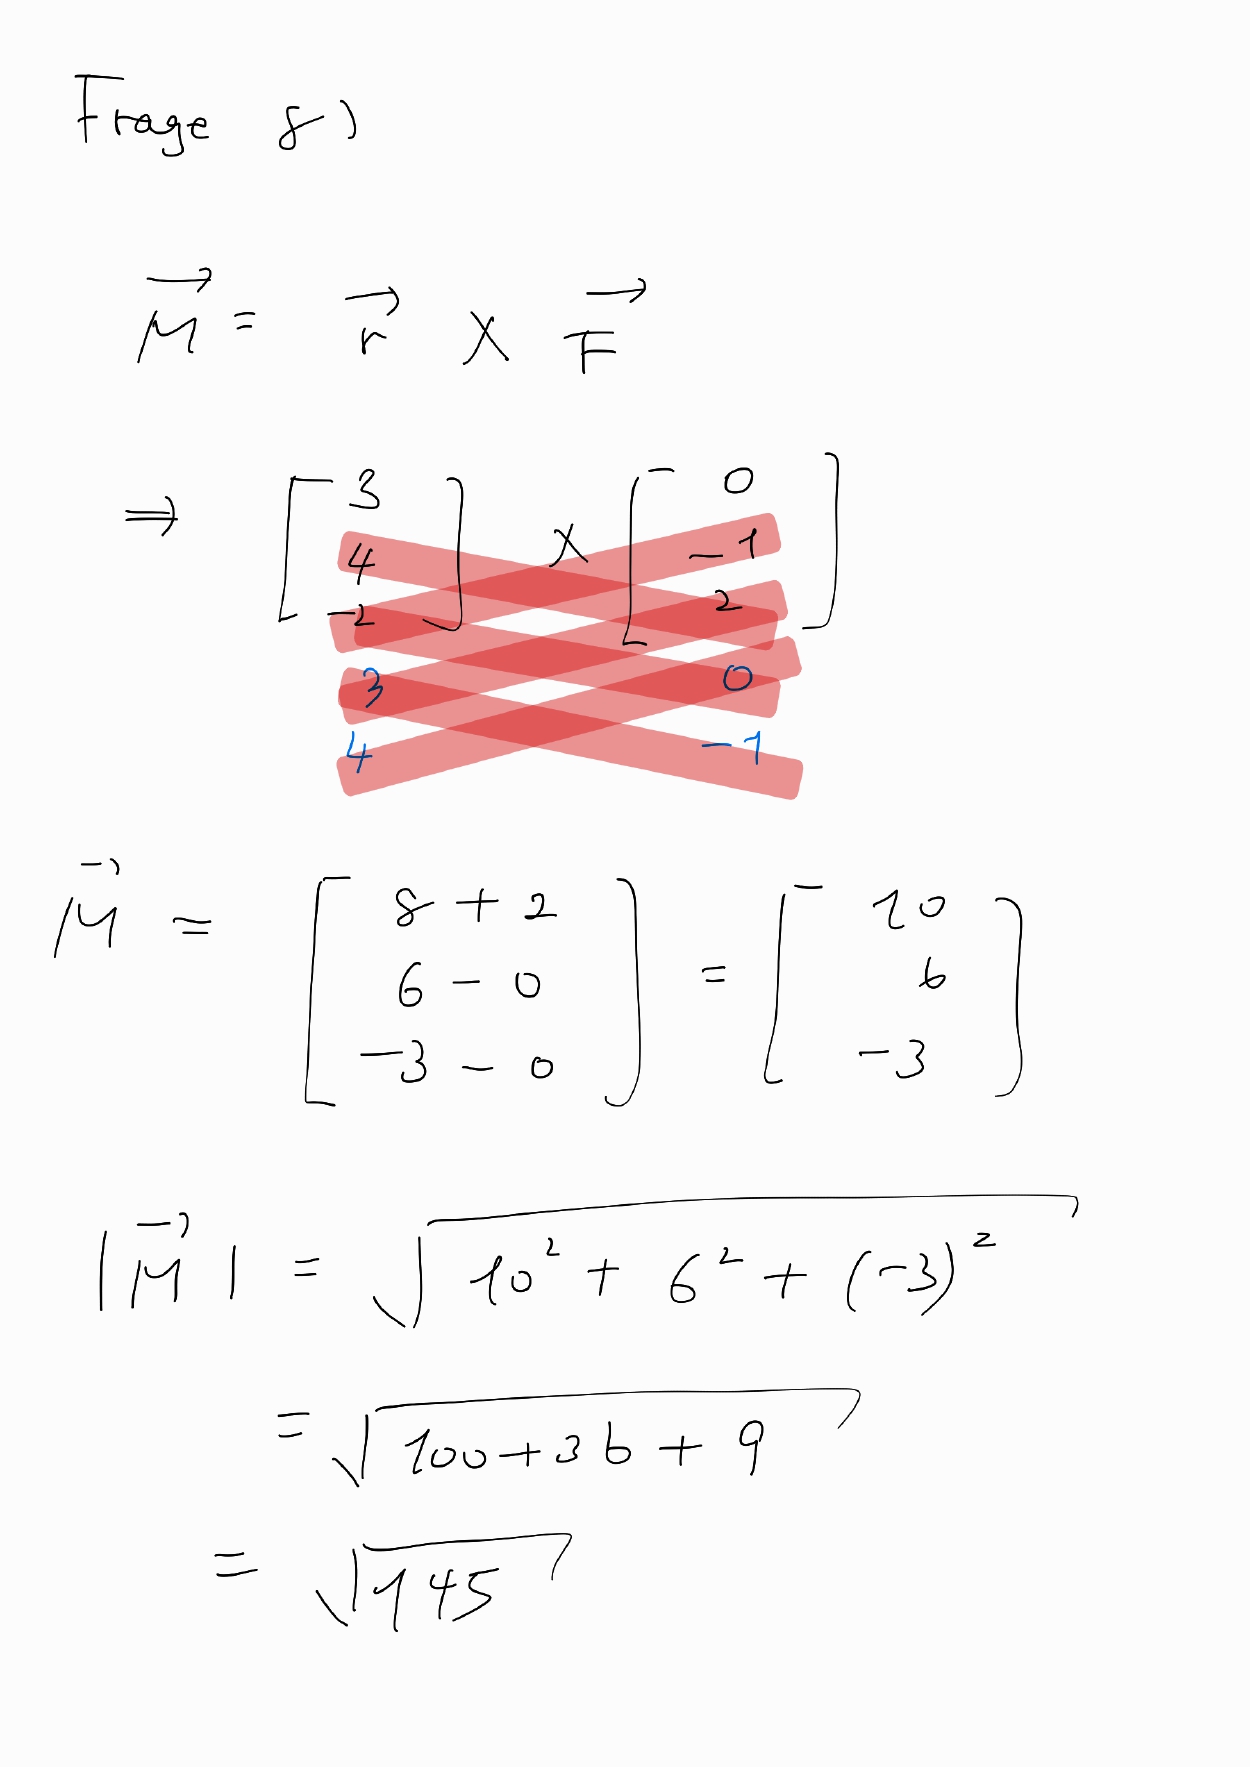 Frage 8)
M = r × F
⇒ [ 3 ] × [ 0 ]
4 -1
-2 2
3 0
4 -1
M = [ 8 + 2 ] = [ 10 ]
6 - 0 6
-3 - 0 -3
|M| = √10² + 6² + (-3)²
= √100 + 36 + 9
= √145